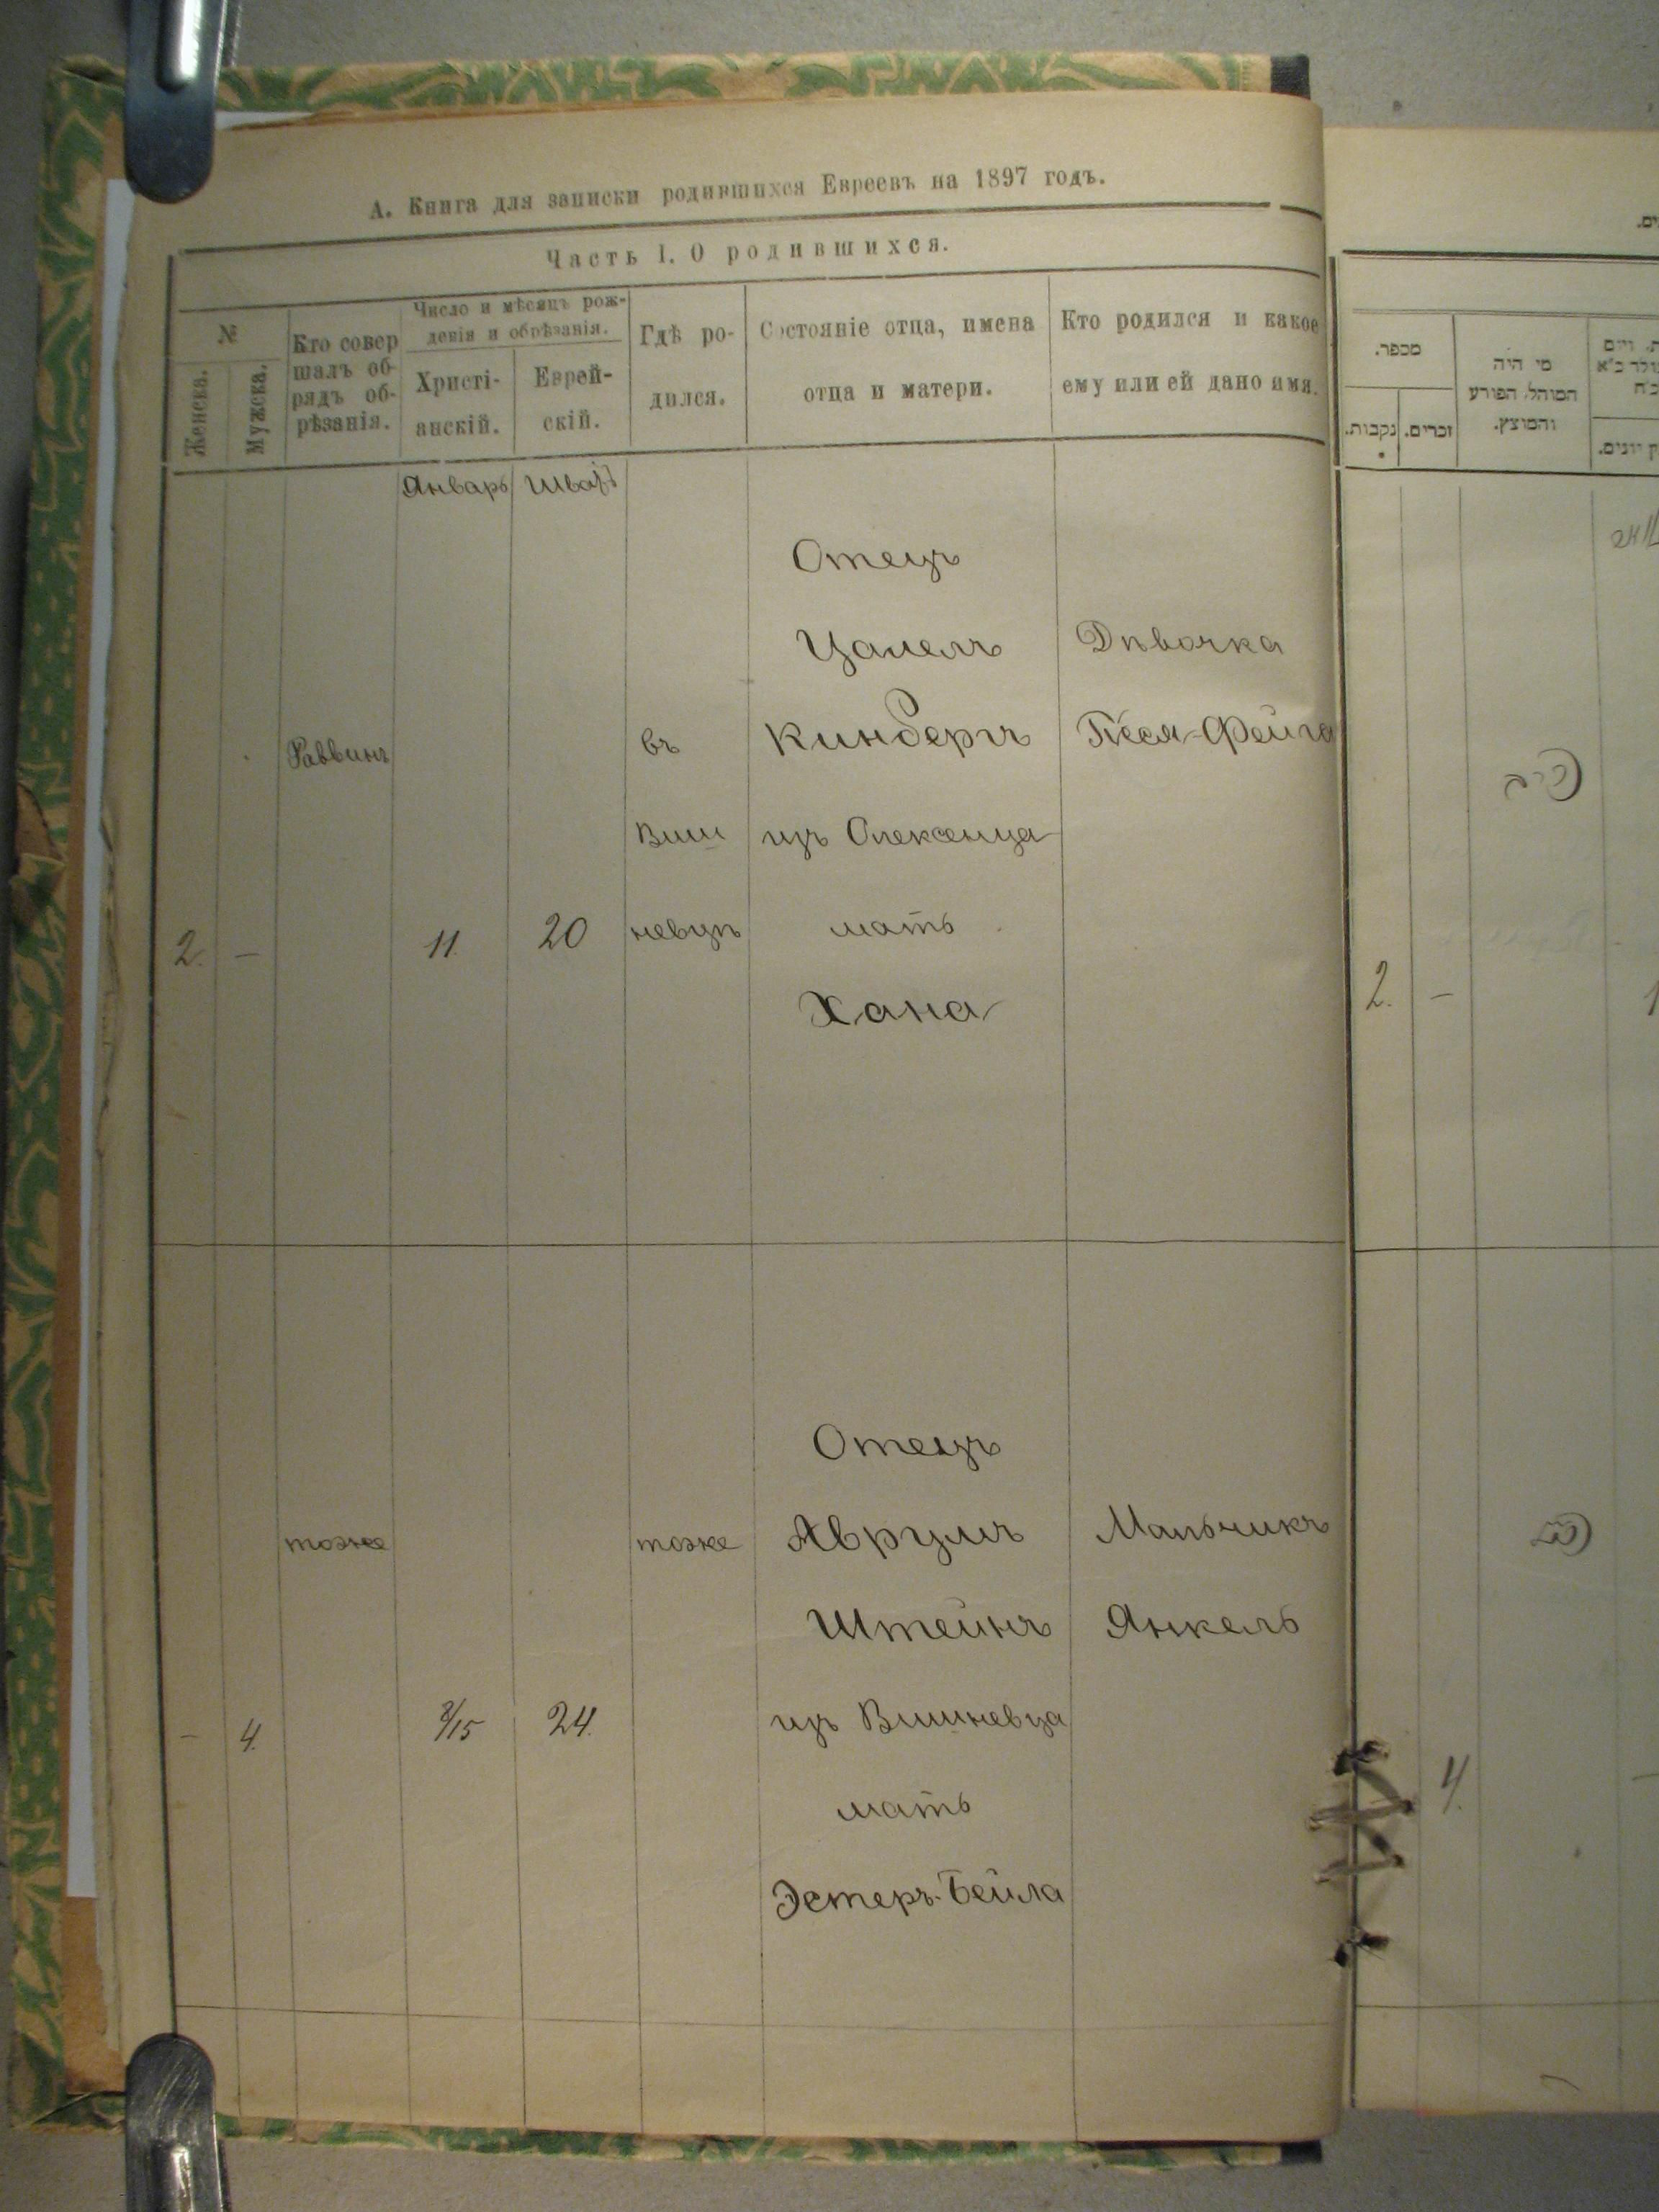 А. Книга для записки родившихся Евреевъ на 1897 годъ.
Часть I. О родившихся.
№
Женска.
Мужска.
Кто совер
шалъ об-
рядъ об-
рѣзанія.
Число и мѣсяцъ рож-
денія и обрѣзанія.
Христі-
анскій.
Еврей-
скій.
Гдѣ ро-
дился.
Состояніе отца, имена
отца и матери.
Кто родился и какое
ему или ей дано имя.
Январь
Шватъ
2.
—
Раввинъ
11.
20
въ
Виш
невцѣ
Отецъ
Киндеръ
изъ Олексенца
мать
Хана
Дѣвочка
Песя-Фейга
—
4.
тоже
8/15
24.
тоже
Отецъ
Аврумъ
Штейнъ
изъ Вишневца
мать
Эстеръ-Бейла
Мальчикъ
Янкель
מספר.
נקבות.
זכרים.
מי היה
המוהל, הפורע
והמוצץ.
2.
—
4.